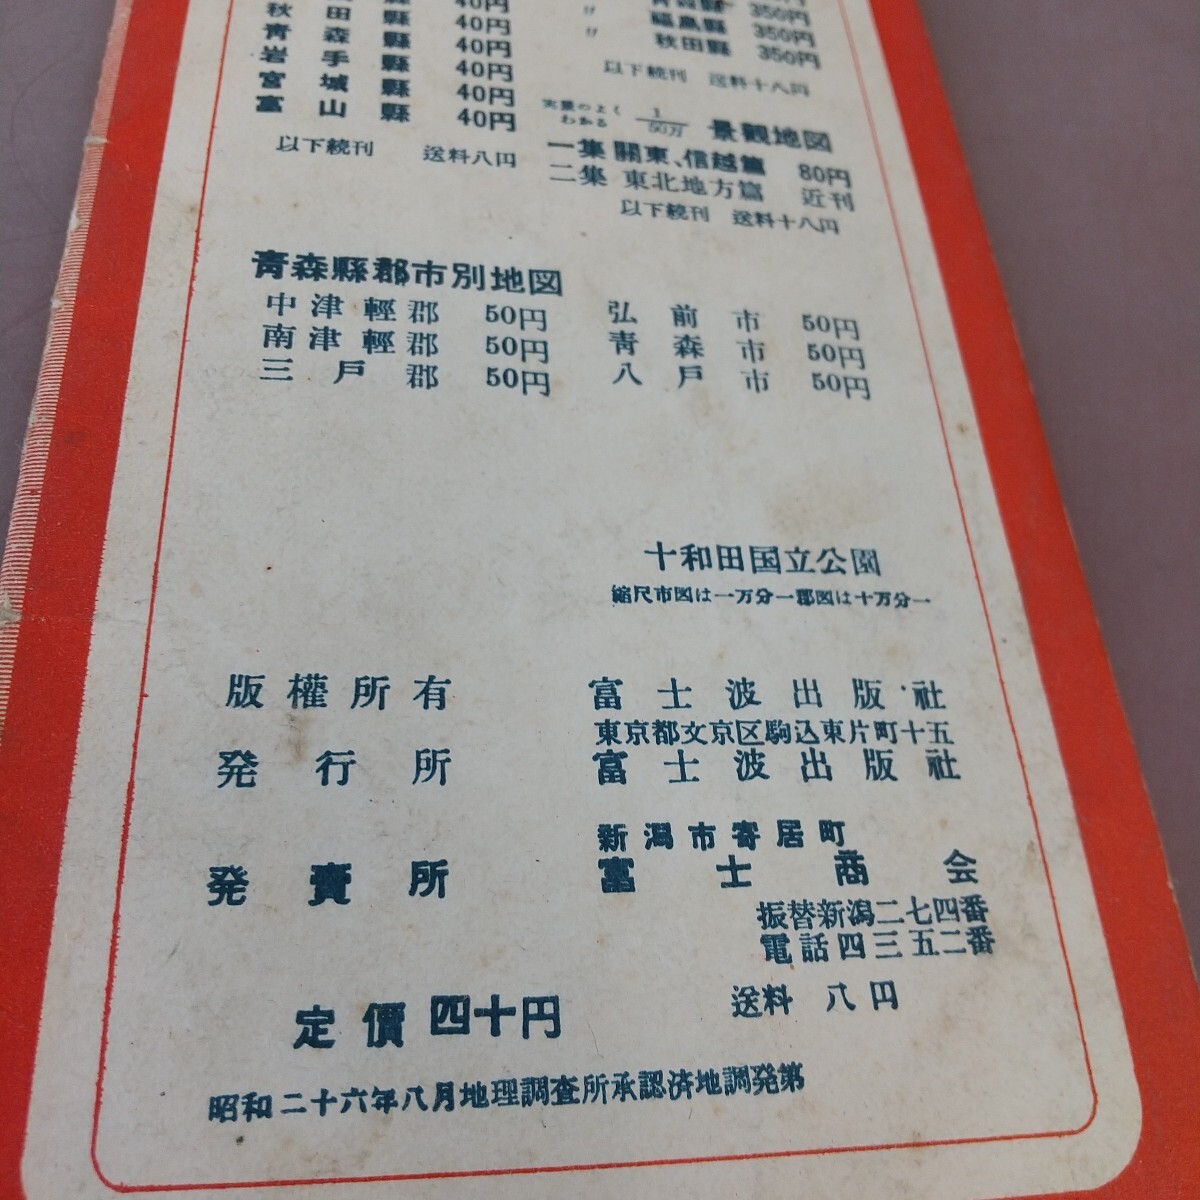 40円
秋田縣 40円
青森縣 40円
岩手縣 40円
宮城縣 40円
富山縣 40円
以下続刊 送料八円
青森縣 350円
〃 福島縣 350円
〃 秋田縣 350円
以下続刊 送料十八円
実景のよくわかる 1/50万 景観地図
一集 關東、信越篇 80円
二集 東北地方篇 近刊
以下続刊 送料十八円
青森縣郡市別地図
中津輕郡 50円 弘前市 50円
南津輕郡 50円 青森市 50円
三戸郡 50円 八戸市 50円
十和田国立公園
縮尺市図は一万分一郡図は十万分一
版權所有 富士波出版社
東京都文京区駒込東片町十五
発行所 富士波出版社
新潟市寄居町
発賣所 富士商会
振替新潟二七四番
電話四三五二番
定價四十円 送料八円
昭和二十六年八月地理調査所承認済地調発第